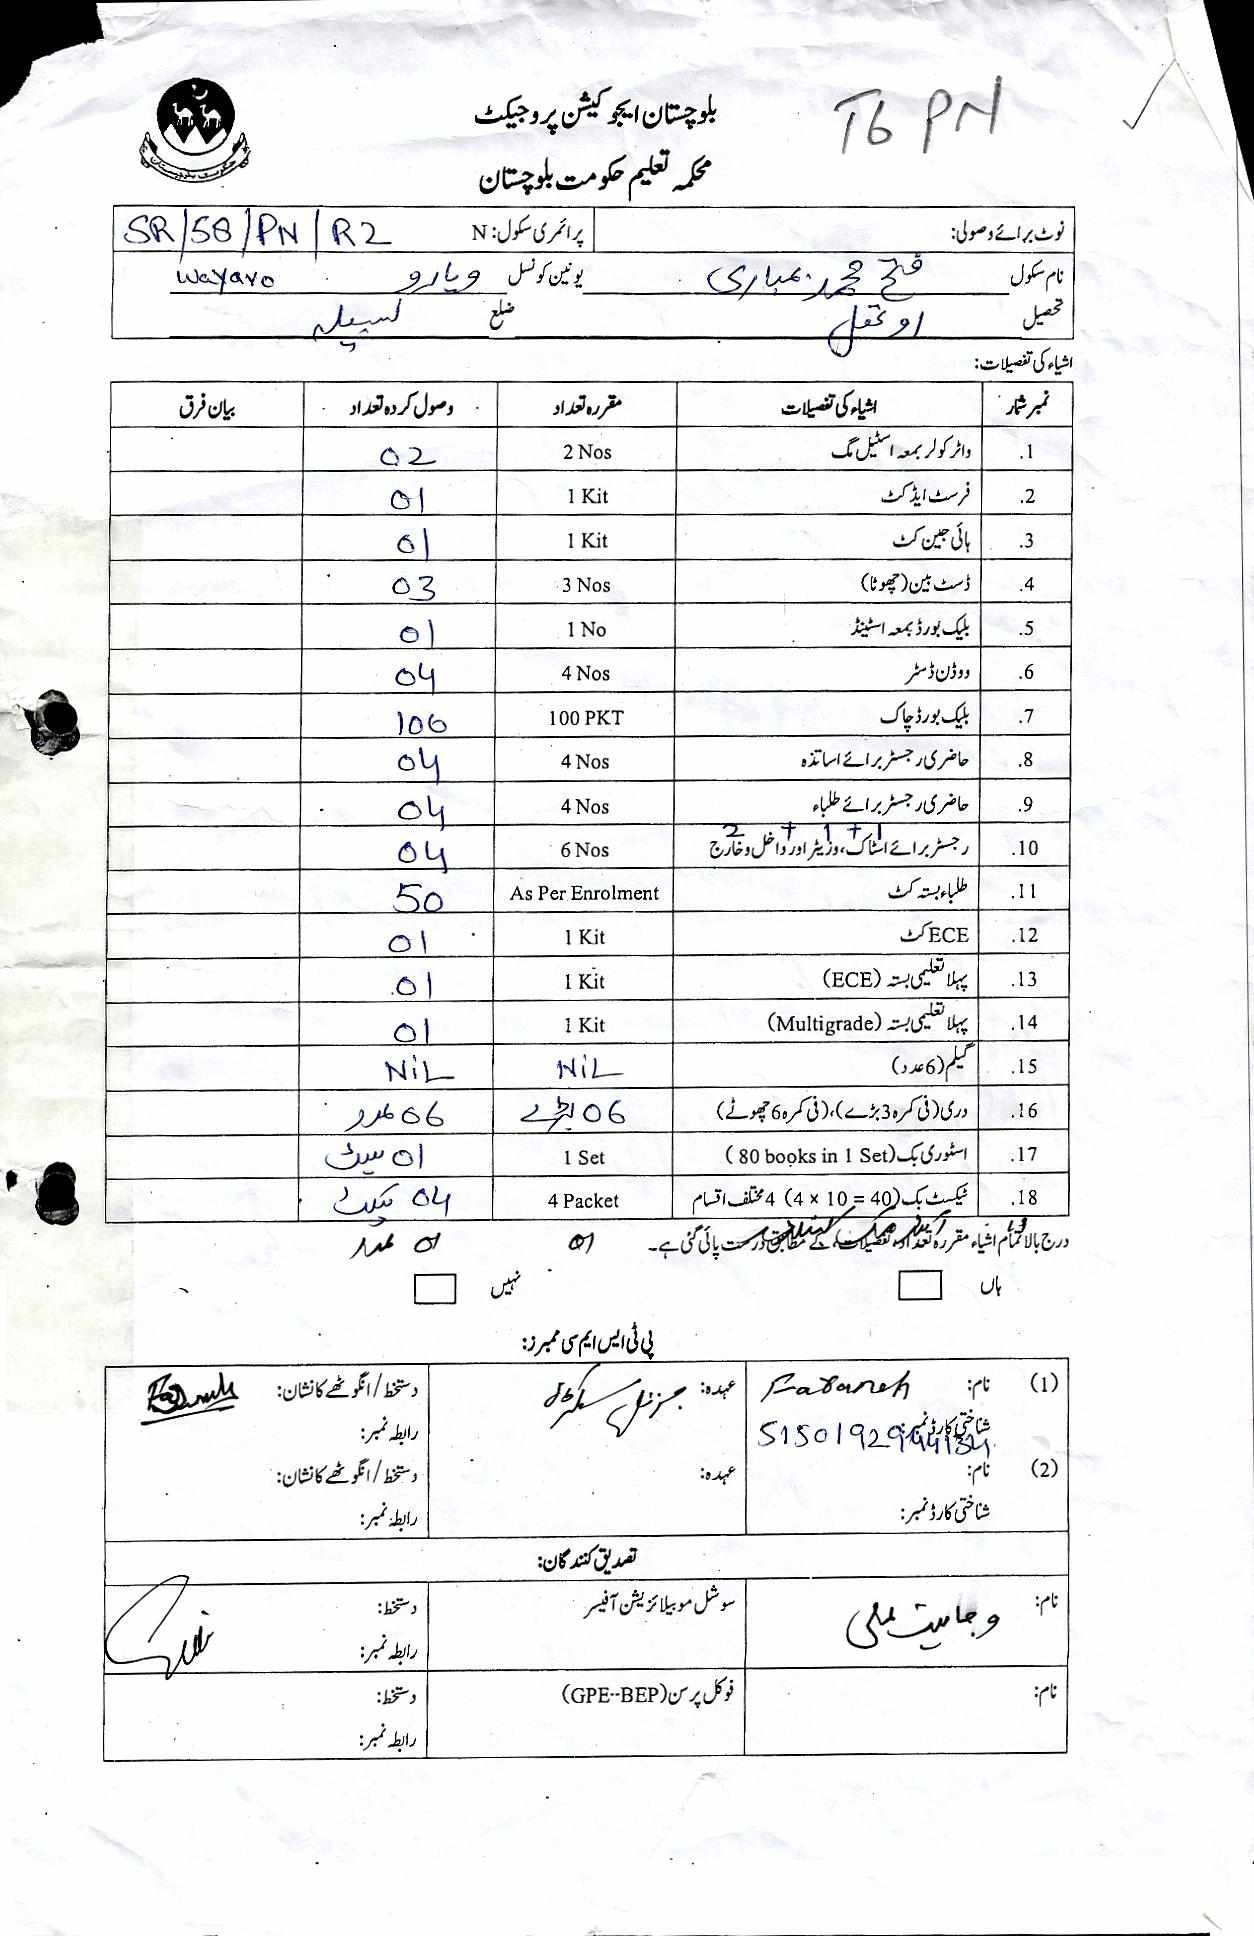 بلوچستان ایجوکیشن پروجیکٹ
T6 PN
محکمہ تعلیم حکومت بلوچستان
نوٹ برائے وصولی: پرائمری سکول: N SR/58/PN/R2
نام سکول فتح محمد بمباری یونین کونسل ویارو wayaro
تحصیل اوتھل ضلع لسبیلہ
اشیاء کی تفصیلات:
نمبر شمار اشیاء کی تفصیلات مقررہ تعداد وصول کردہ تعداد بیان فرق
1. واٹر کولر بمعہ اسٹیل مگ 2 Nos 02
2. فرسٹ ایڈ کٹ 1 Kit 01
3. ہائی جین کٹ 1 Kit 01
4. ڈسٹ بین (چھوٹا) 3 Nos 03
5. بلیک بورڈ بمعہ اسٹینڈ 1 No 01
6. ووڈن ڈسٹر 4 Nos 04
7. بلیک بورڈ چاک 100 PKT 100
8. حاضری رجسٹر برائے اساتذہ 4 Nos 04
9. حاضری رجسٹر برائے طلباء 4 Nos 04
2 + 1 + 1
10. رجسٹر برائے اسٹاک، وزیٹر اور داخل و خارج 6 Nos 04
11. طلباء بستہ کٹ As Per Enrolment 50
12. ECE کٹ 1 Kit 01
13. پہلا تعلیمی بستہ (ECE) 1 Kit 01
14. پہلا تعلیمی بستہ (Multigrade) 1 Kit 01
15. گیلم (6 عدد) NiL NiL
16. دری (فی کمرہ 3 بڑے)، (فی کمرہ 6 چھوٹے) 06 بڑے 06 عدد
17. اسٹوری بک (80 books in 1 Set) 1 Set 01 سیٹ
18. ٹیکسٹ بک (4 × 10 = 40) 4 مختلف اقسام 4 Packet 04 پیکٹ
19 01 01 عدد
درج بالا تمام اشیاء مقررہ تعداد، تفصیلات کے مطابق درست پائی گئی ہے۔
ہاں نہیں
پی ٹی ایس ایم سی ممبرز:
(1) نام: Fabaneh عہدہ: جنرل سیکرٹری دستخط/انگوٹھے کا نشان:
شناختی کارڈ نمبر: رابطہ نمبر:
(2) نام: عہدہ: دستخط/انگوٹھے کا نشان:
شناختی کارڈ نمبر: رابطہ نمبر:
تصدیق کنندگان:
نام: وجاہت علی سوشل موبیلائزیشن آفیسر دستخط:
رابطہ نمبر:
نام: فوکل پرسن (GPE--BEP) دستخط:
رابطہ نمبر: